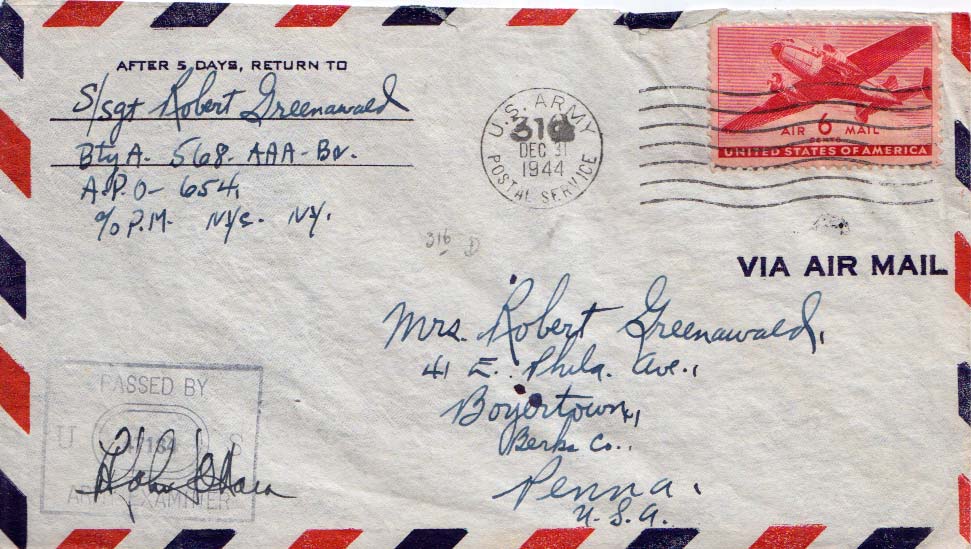 AFTER 5 DAYS, RETURN TO
S/Sgt Robert Greenawald
Bty A- 568- AAA-Bn.
A.P.O- 654,
c/o P.M. NYC. NY.
U.S. ARMY
316
DEC 31
1944
POSTAL SERVICE
AIR 6 MAIL
CENTS
UNITED STATES OF AMERICA
316 D
VIA AIR MAIL
Mrs. Robert Greenawald,
41 E. Phila. Ave.,
Boyertown,
Berks Co.,
Penna.
U.S.A.
PASSED BY
U S
ARMY EXAMINER